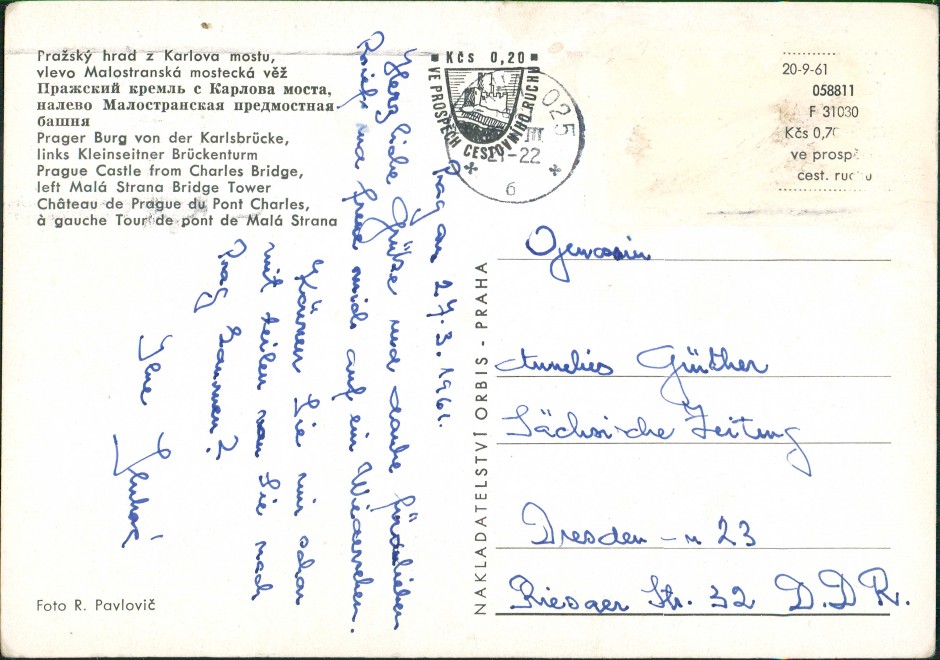 Pražský hrad z Karlova mostu,
vlevo Malostranská mostecká věž
Пражский кремль с Карлова моста,
налево Малостранская предмостная
башня
Prager Burg von der Karlsbrücke,
links Kleinseitner Brückenturm
Prague Castle from Charles Bridge,
left Malá Strana Bridge Tower
Château de Prague du Pont Charles,
à gauche Tour de pont de Malá Strana
Kčs 0,20
VE PROSPĚCH CESTOVNÍHO RUCHU
025
III
21-22
6
20-9-61
058811
F 31030
Kčs 0,70
ve prospě
cest. ruchu
Prag am 27.3.1961.
Herzliche Grüße und danke für den lieben
Brief und freue mich auf ein Wiedersehen.
Können Sie mir schon
mit teilen wan Sie nach
Prag kommen?
Ihre
NAKLADATELSTVÍ ORBIS - PRAHA
Genossin
Annelies Günther
Sächsische Zeitung
Dresden - n 23
Riesaer Str. 32 D.D.R.
Foto R. Pavlovič